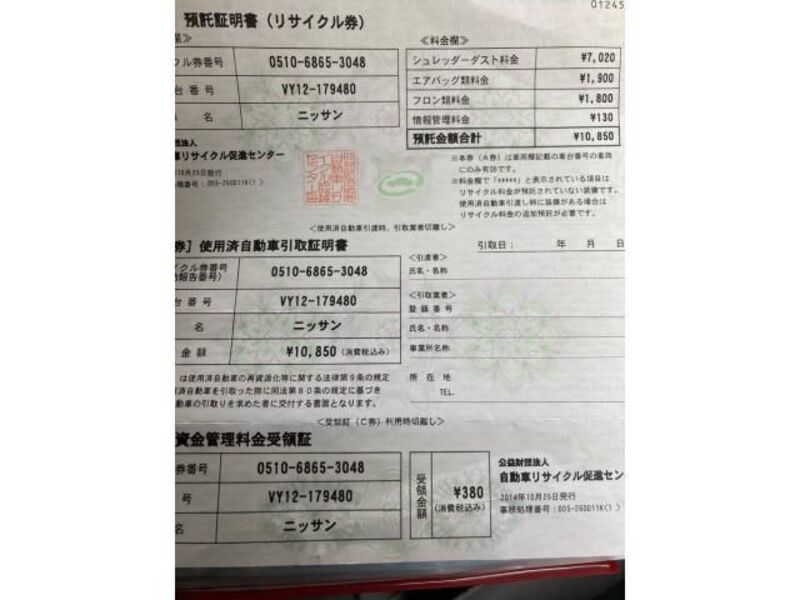 01245
預託証明書（リサイクル券）
欄≫
クル券番号 0510-6865-3048
台番号 VY12-179480
名 ニッサン
≪料金欄≫
シュレッダーダスト料金 ¥7,020
エアバッグ類料金 ¥1,900
フロン類料金 ¥1,800
情報管理料金 ¥130
預託金額合計 ¥10,850
団法人
車リサイクル促進センター
10月25日発行
処理番号:005-26D011K(1 )
※本券（A券）は車両欄記載の車台番号の車両
にのみ有効です。
※料金欄で「*****」と表示されている項目は
リサイクル料金が預託されていない装備です。
使用済自動車引渡し時に装備がある場合は
リサイクル料金の追加預託が必要です。
＜使用済自動車引渡時、引取業者切離し＞
券］使用済自動車引取証明書
引取日： 年 月 日
イクル券番号
動報告番号） 0510-6865-3048
台番号 VY12-179480
名 ニッサン
金額 ¥10,850（消費税込み）
＜引渡者＞
氏名・名称
＜引取業者＞
登録番号
氏名・名称
事業所名称
所在地
TEL.
は使用済自動車の再資源化等に関する法律第９条の規定
済自動車を引取った際に同法第８０条の規定に基づき
動車の引取りを求めた者に交付する書面となります。
＜受領証（C券）利用時切離し＞
資金管理料金受領証
券番号 0510-6865-3048
号 VY12-179480
名 ニッサン
受領金額 ¥380
（消費税込み）
公益財団法人
自動車リサイクル促進セン
2014年10月25日発行
事務処理番号:005-26D011K(1 )